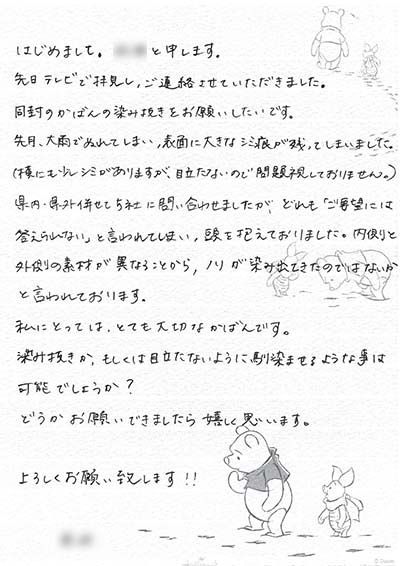 はじめまして。と申します。
先日テレビで拝見し、ご連絡させていただきました。
同封のかばんの染み抜きをお願いしたいです。
先月、大雨でぬれてしまい、表面に大きなシミ痕が残ってしまいました。
(横にも少しシミがありますが、目立たないので問題視しておりません。)
県内・県外併せて5社に問い合わせましたが、どれも「ご要望には
答えられない」と言われてしまい、頭を抱えておりました。内側と
外側の素材が異なることから、ノリが染み出てきたのではないか
と言われております。
私にとっては、とても大切なかばんです。
染み抜きか、もしくは目立たないように馴染ませるような事は
可能でしょうか?
どうかお願いできましたら嬉しく思います。
よろしくお願い致します!!
© Disney